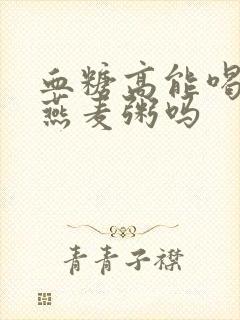 血糖高能喝
燕麦粥吗
青青子襟